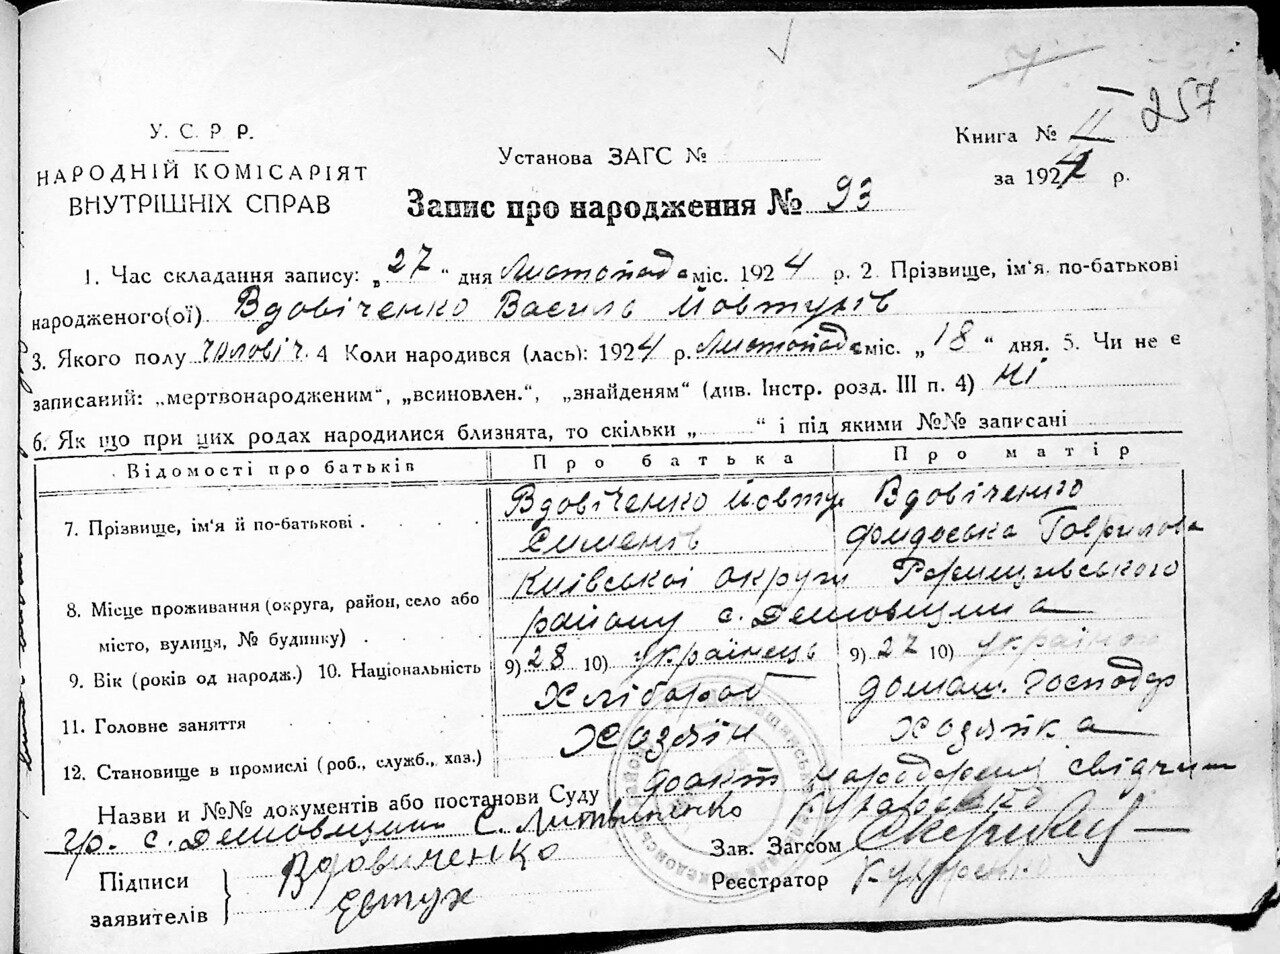 257
Книга № II
У. С. Р Р.
Установа ЗАГС №
за 1924 р.
НАРОДНІЙ КОМІСАРІЯТ
ВНУТРІШНІХ СПРАВ
Запис про народження № 93
1. Час складання запису: „27“ дня Листопада міс. 1924 р. 2. Прізвище, ім'я, по-батькові
народженого(ої) Вдовіченко Василь Йовтухів
3. Якого полу чоловіч. 4 Коли народився (лась): 1924 р. Листопада міс. „18“ дня. 5. Чи не є
записаний: „мертвонародженим“, „всиновлен.“, „знайденям“ (див. Інстр. розд. III п. 4) Ні
6. Як що при цих родах народилися близнята, то скільки „ “ і під якими №№ записані
Відомості про батьків Про батька Про матір
7. Прізвище, ім'я й по-батькові . Вдовіченко Йовтух Вдовіченко
Сименів Фидоська Гаврилова
8. Місце проживання (округа, район, село або Київської округи Ржищівського
місто, вулиця, № будинку) району с.
9. Вік (років од народж.) 10. Національність 9) 28 10) українець 9) 27 10)
11. Головне заняття Хлібороб домаш. господар
12. Становище в промислі (роб., служб., хаз.) Хозяїн Хозяйка
Назви и №№ документів або постанови Суду факт народження свідчит
гр. с. С. Литвиненко
Зав. Загсом
Підписи Вдовиченко
Реєстратор
заявителів Євтух